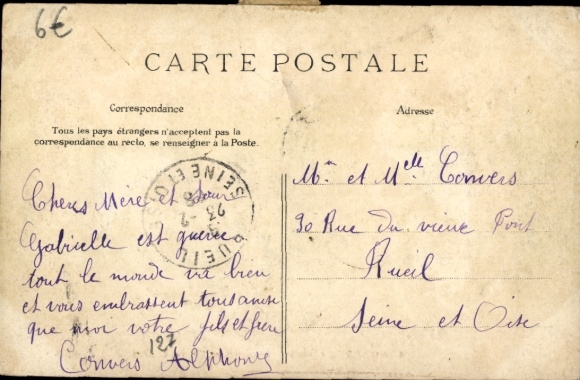 6€
CARTE POSTALE
Correspondance
Tous les pays étrangers n'acceptent pas la
correspondance au recto, se renseigner à la Poste.
Chers Mère et Sœur
Gabrielle est guérie
tout le monde va bien
et vous embrassent tous ainsi
que moi votre fils et frère
Convers Alphonse
127
RUEIL
SEINE ET OISE
23 -2
Adresse
Mme et Melle Convers
30 Rue du vieux Pont
Rueil
Seine et Oise